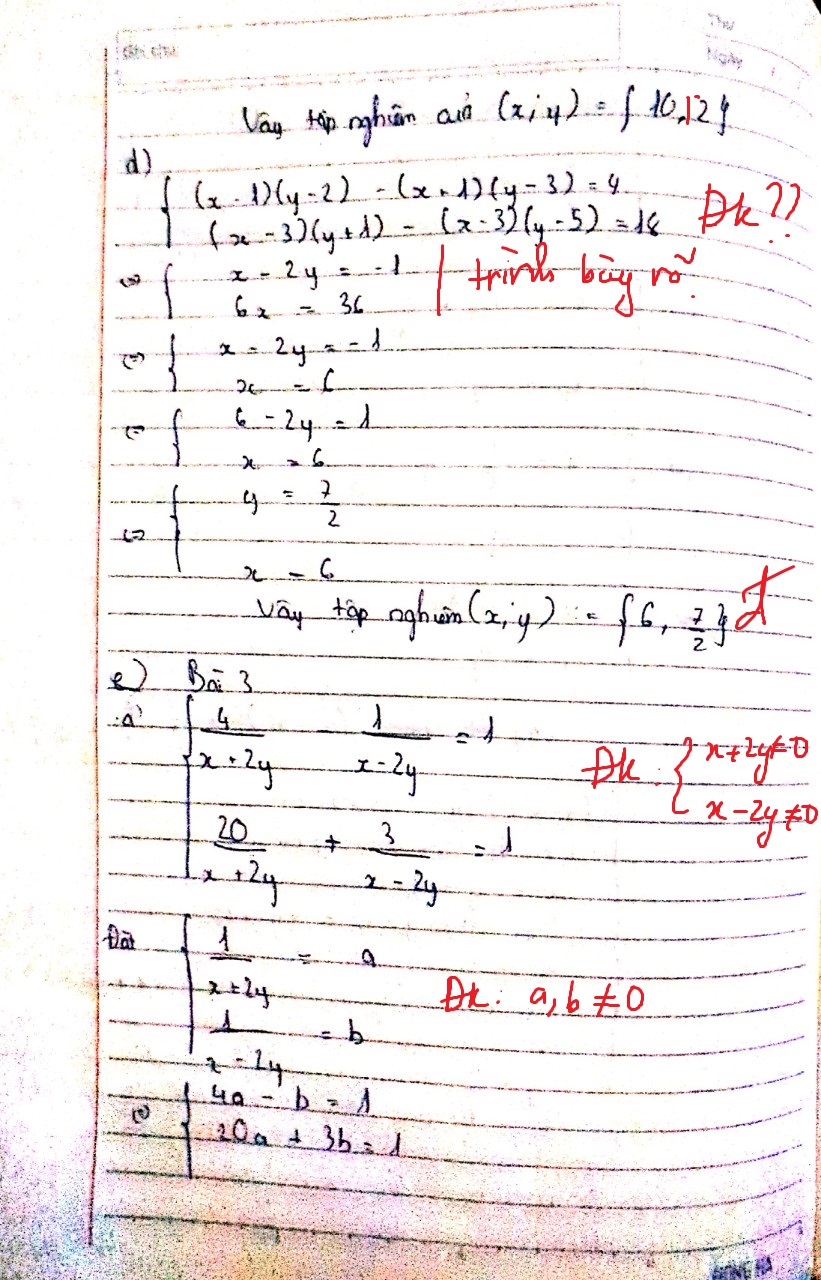 Thứ
Ngày
Vậy tập nghiệm của (x; y) = { 10, 12 }
d)
(x - 1)(y - 2) - (x + 1)(y - 3) = 4
(x - 3)(y + 1) - (x - 3)(y - 5) = 18
Đk ??
(=) x - 2y = -1
6x = 36
trình bày rõ.
(=) x - 2y = -1
x = 6
(=) 6 - 2y = 1
x = 6
(=) y = 7/2
x = 6
Vậy tập nghiệm (x, y) = { 6, 7/2 } đ
e) Bài 3
a) 4/(x + 2y) - 1/(x - 2y) = 1
Đk : { x + 2y ≠ 0
x - 2y ≠ 0
20/(x + 2y) + 3/(x - 2y) = 1
Đặt 1/(x + 2y) = a
Đk : a, b ≠ 0
1/(x - 2y) = b
(=) 4a - b = 1
20a + 3b = 1